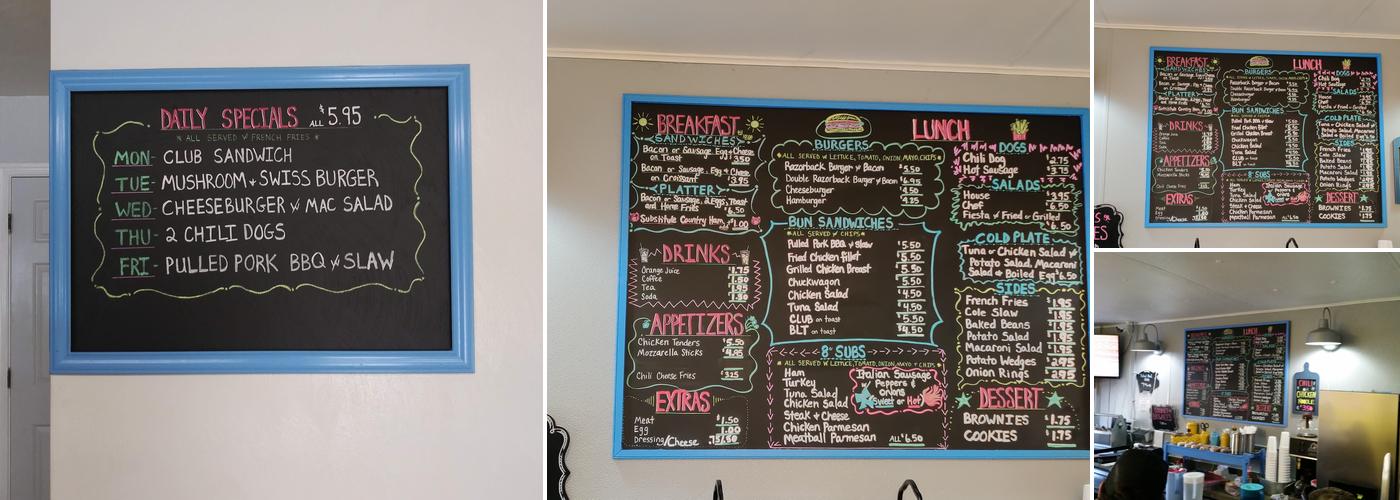 DAILY SPECIALS ALL $5.95
* ALL SERVED W/ FRENCH FRIES *
MON- CLUB SANDWICH
TUE- MUSHROOM + SWISS BURGER
WED- CHEESEBURGER W/ MAC SALAD
THU- 2 CHILI DOGS
FRI- PULLED PORK BBQ W/ SLAW
BREAKFAST
SANDWICHES
Bacon or Sausage, Egg + Cheese
on Toast $3.50
Bacon or Sausage, Egg + Cheese
on Croissant $3.95
PLATTER
Bacon or Sausage, 2 Eggs, Toast
and Home Fries $6.50
Substitute Country Ham, add $1.00
DRINKS
Orange Juice $1.75
Coffee 1.50
Tea 1.95
Soda 1.50
APPETIZERS
Chicken Tenders $5.50
Mozzarella Sticks $4.95
Chili Cheese Fries $3.25
EXTRAS
Meat $1.50
Egg 1.00
Dressing/Cheese .75/.50
LUNCH
BURGERS
* ALL SERVED W/ LETTUCE, TOMATO, ONION, MAYO, CHIPS *
Razorback Burger w/ Bacon $5.50
Double Razorback Burger w/ Bacon $6.95
Cheeseburger $4.50
Hamburger $4.25
BUN SANDWICHES
* ALL SERVED W/ CHIPS *
Pulled Pork BBQ w/ slaw $5.50
Fried Chicken fillet $5.50
Grilled Chicken Breast $5.50
Chuckwagon $5.50
Chicken Salad $4.50
Tuna Salad $4.50
CLUB on toast $5.50
BLT on toast $4.50
8" SUBS
* ALL SERVED W/ LETTUCE, TOMATO, ONION, MAYO + CHIPS *
Ham
Turkey
Tuna Salad
Chicken Salad
Steak + Cheese
Chicken Parmesan
Meatball Parmesan ALL $6.50
Italian Sausage
w/ Peppers &
onions
(Sweet or Hot)
DOGS
Chili Dog $2.75
Hot Sausage $3.75
SALADS
House $3.95
Chef 6.50
Fiesta w/ Fried or Grilled
$6.50
COLD PLATE
Tuna or Chicken Salad,
Potato Salad, Macaroni
Salad & Boiled Egg $6.50
SIDES
French Fries $1.95
Cole Slaw $1.95
Baked Beans $1.95
Potato Salad $1.95
Macaroni Salad $1.95
Potato Wedges $2.95
Onion Rings $2.95
DESSERT
BROWNIES $1.75
COOKIES $1.75
BREAKFAST
SANDWICHES
PLATTER
DRINKS
APPETIZERS
EXTRAS
LUNCH
BURGERS
BUN SANDWICHES
8" SUBS
DOGS
SALADS
COLD PLATE
SIDES
DESSERT
BROWNIES
COOKIES
LUNCH
CHILI
CHICKEN
NOODLE